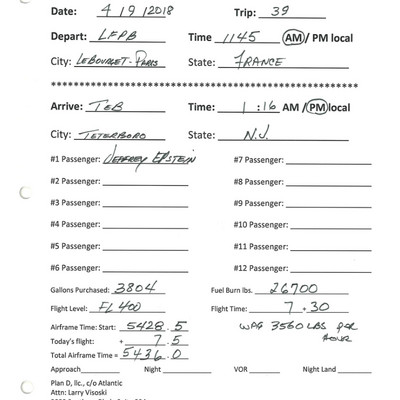 Date: 4 19 12018 Trip: 39
Depart: LFPB Time 1145 AM / PM local
City: LeBourget - Paris State: FRANCE
******************************************************
Arrive: TEB Time: 1 :16 AM / PM local
City: TETERBORO State: N.J.
#1 Passenger: JEFFREY EPSTEIN #7 Passenger:
#2 Passenger: #8 Passenger:
#3 Passenger: #9 Passenger:
#4 Passenger: #10 Passenger:
#5 Passenger: #11 Passenger:
#6 Passenger: #12 Passenger:
Gallons Purchased: 3804 Fuel Burn lbs. 26700
Flight Level: FL400 Flight Time: 7 + 30
Airframe Time: Start: 5428.5 WAG 3560 LBS PER
Today's flight: + 7.5 HOUR
Total Airframe Time = 5436.0
Approach Night VOR Night Land
Plan D, llc., c/o Atlantic
Attn: Larry Visoski